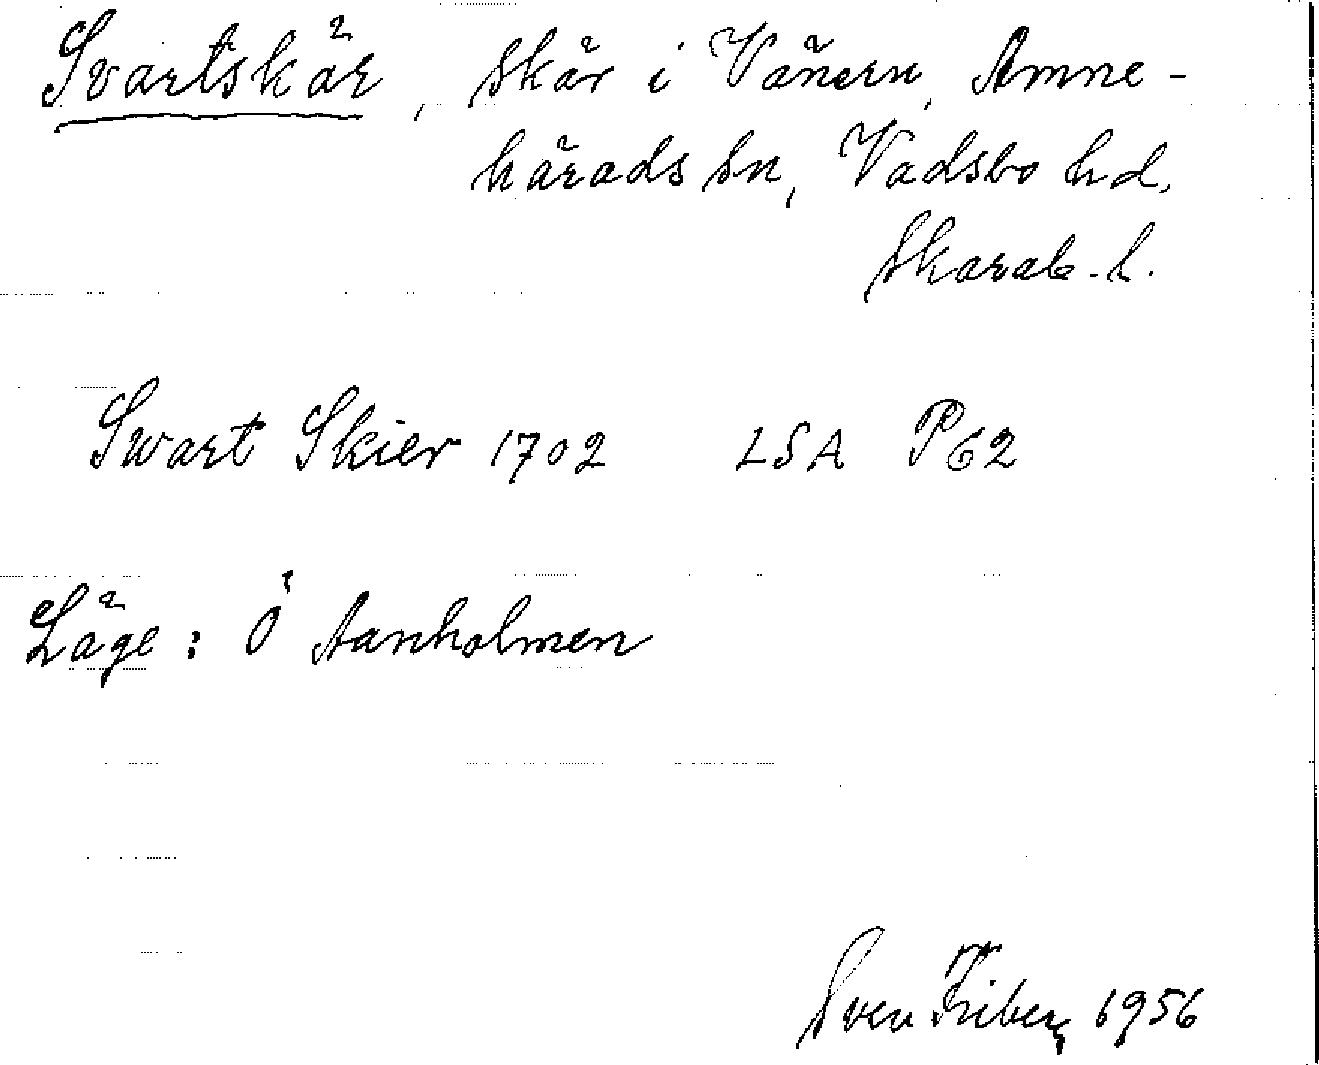 Svartskär, skär i Vänern, Amne-
härads sn, Vadsbo hd,
Skarab. l.
Swart Skier 1702 LSA P62
Läge: Ö Aanholmen
Sven Friberg 1956